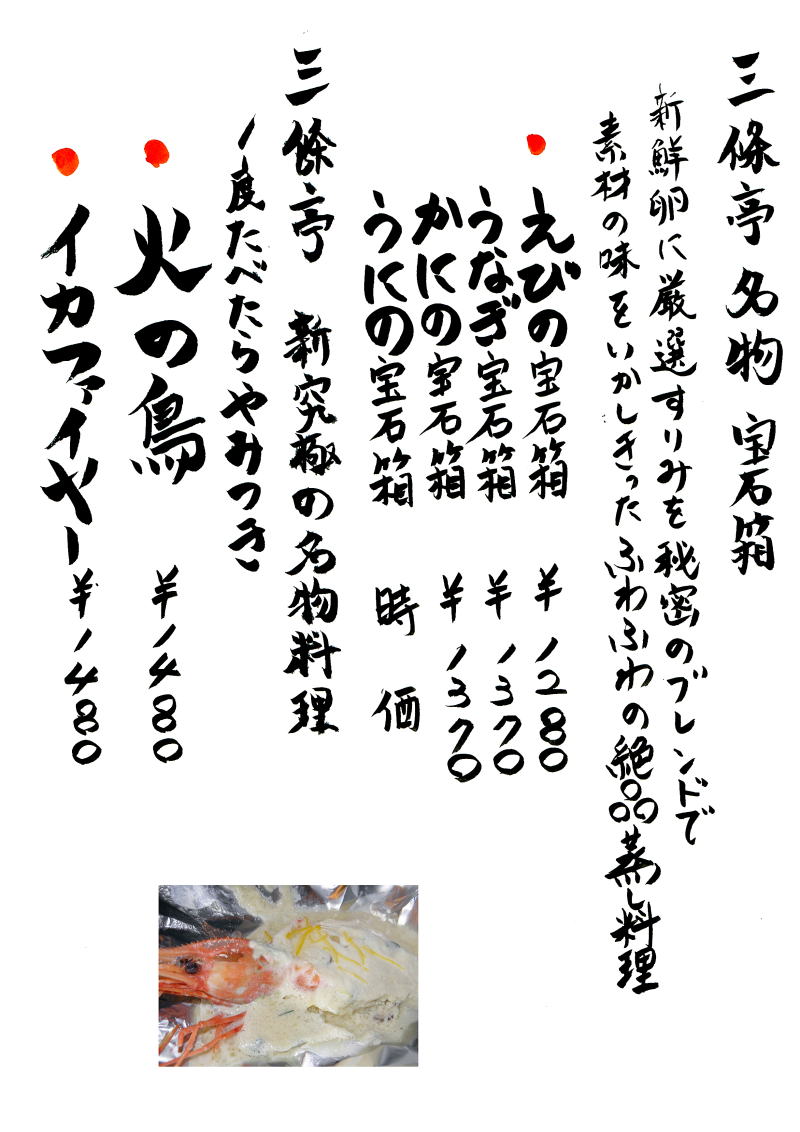 三條亭 名物 宝石箱
新鮮卵に厳選すりみを秘密のブレンドで
素材の味をいかしきったふわふわの絶品蒸し料理
えびの宝石箱 ¥1280
うなぎ宝石箱 ¥1370
かにの宝石箱 ¥1370
うにの宝石箱 時価
三條亭 新究極の名物料理
1度たべたらやみつき
火の鳥 ¥1480
イカファイヤー ¥1480